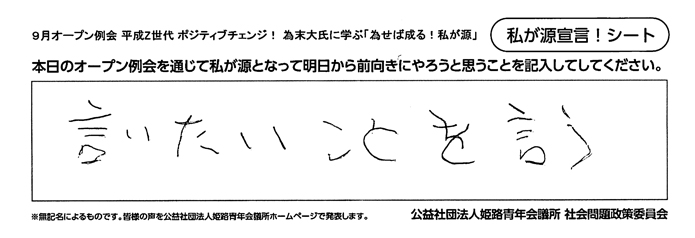 9月オープン例会 平成Z世代 ポジティブチェンジ! 為末大氏に学ぶ「為せば成る!私が源」
私が源宣言!シート
本日のオープン例会を通じて私が源となって明日から前向きにやろうと思うことを記入してしてください。
言いたいことを言う
※無記名によるものです。皆様の声を公益社団法人姫路青年会議所ホームページで発表します。
公益社団法人姫路青年会議所 社会問題政策委員会